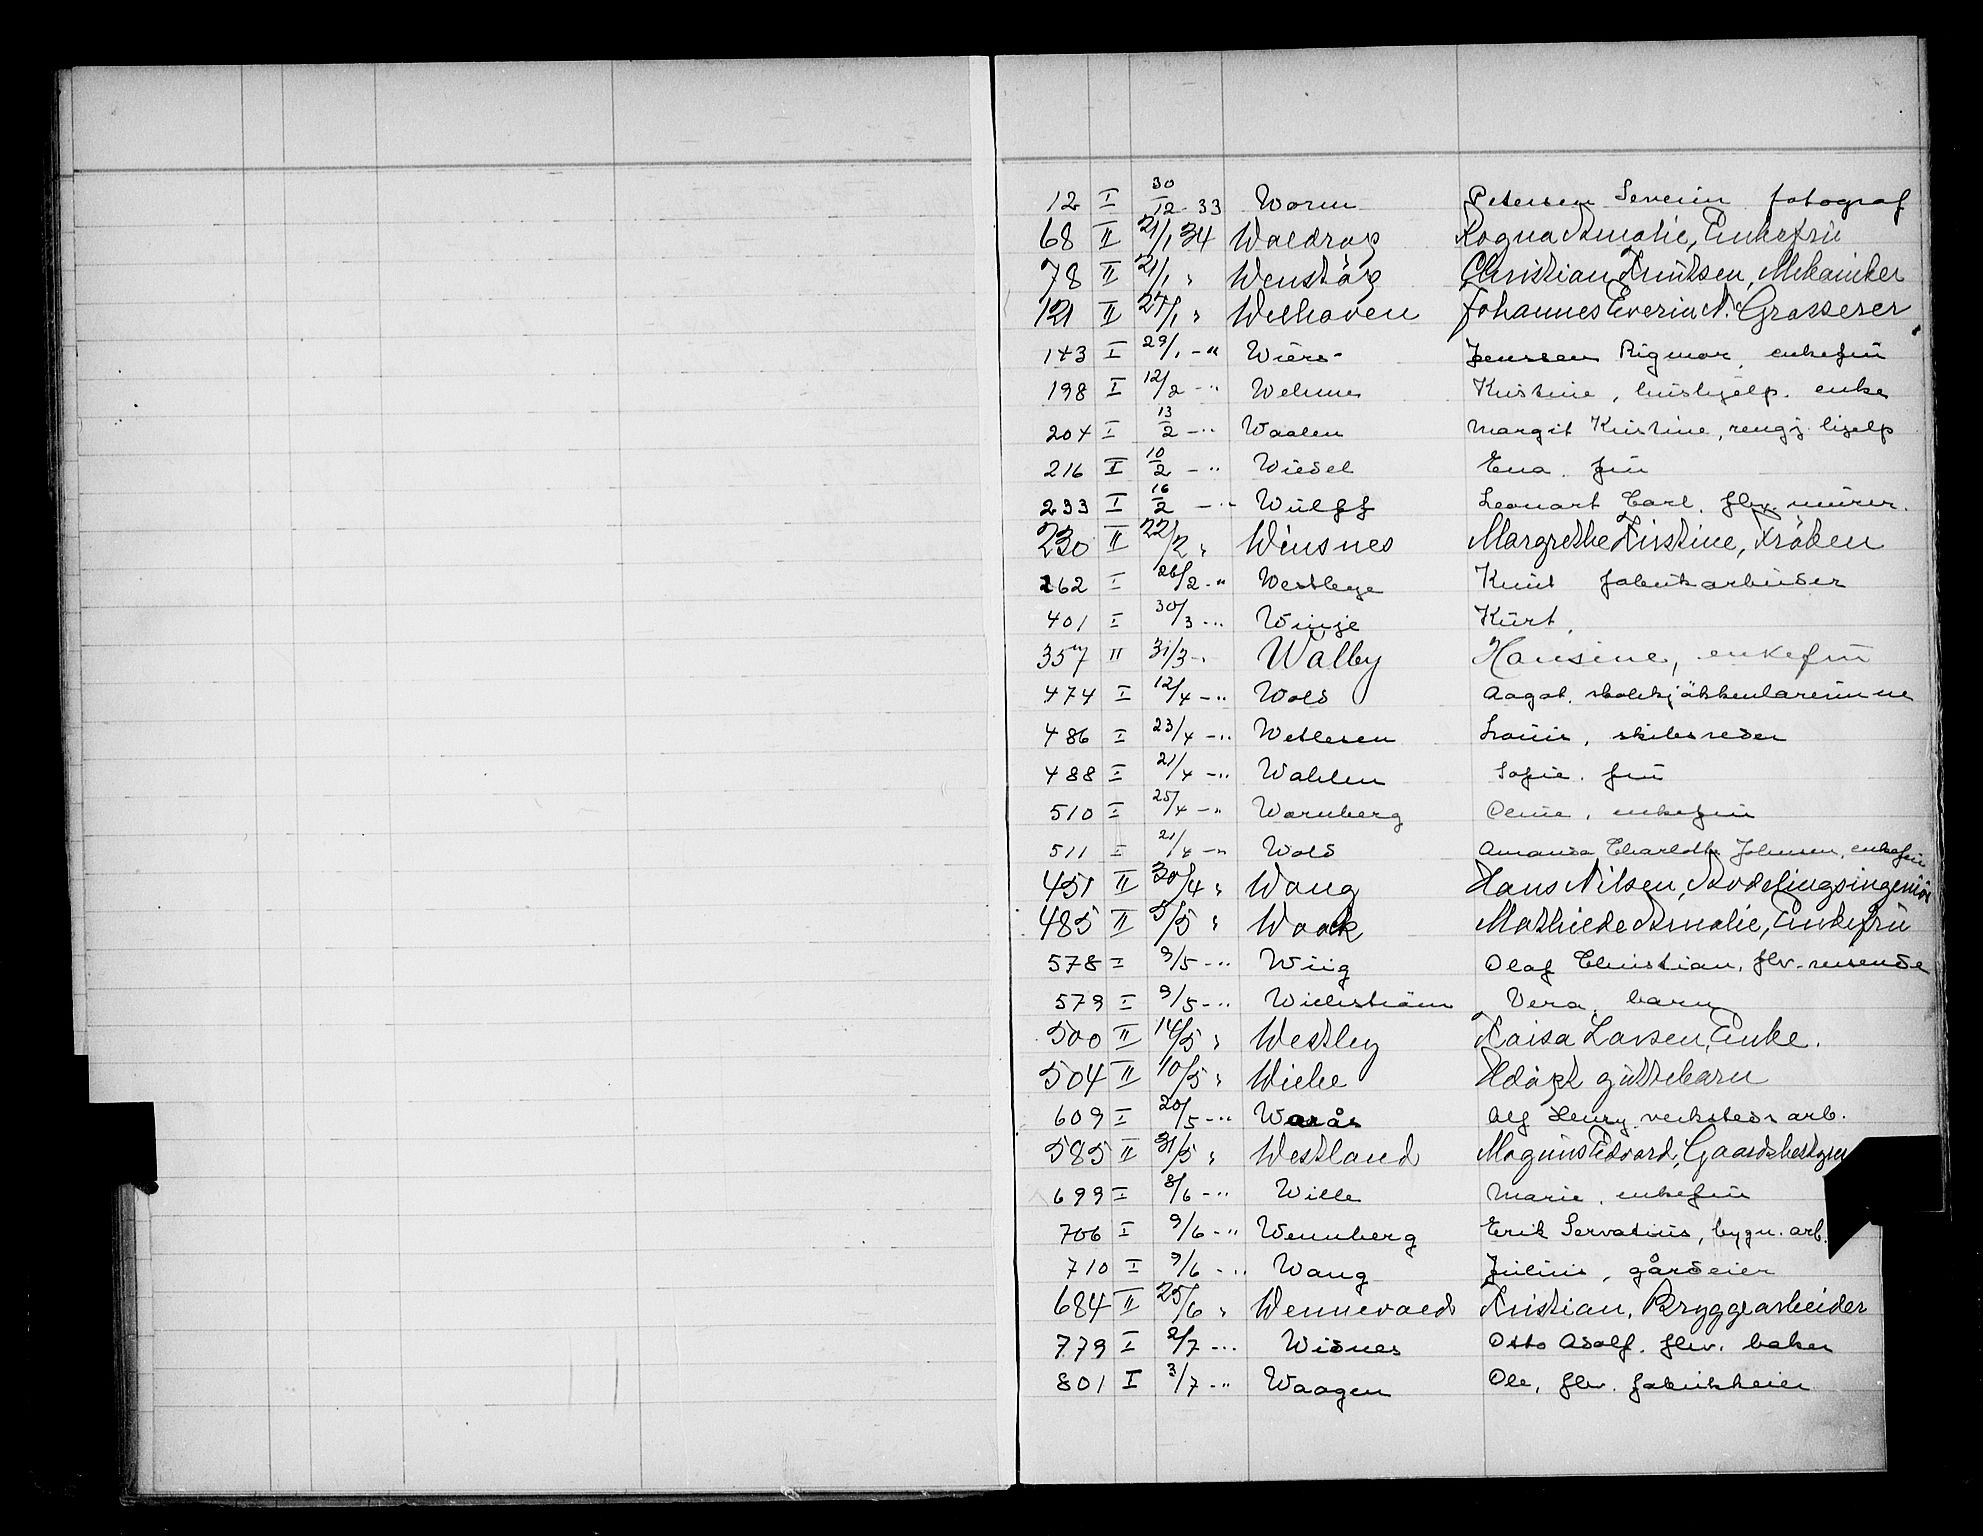 12 I 30/12-33 Worm Petersen Severin fotograf
68 II 21/1 34 Woldrog Ragna Amalie, Enkefrü
78 II 21/1 " Wenstög Christian Knütsen, Mekaniker
121 II 27/1 " Welhaven Johannes Everin N. Grosserer
143 I 29/1 -" Wiers- Jenssen Rigmor, enkefrü
198 I 12/2 -" Welme Kristine, hüshjelp. enke
204 I 13/2 -" Waalen Margit Kristine, rengj. hjelp
216 I 10/2 -" Wiedel Ena. frü
233 I 16/2 -" Wülff Leonart Carl. fhv. mürer.
230 II 22/2 " Winsnes Margrethe Kirstine, Fröken
262 I 26/2 -" Westbye Knüt fabrikarbeider
401 I 30/3 -" Winje Kürt.
357 II 31/3 -" Walby Hansine, enkefrü
474 I 12/4 -" Wold Aagot. skolekjökkenlærerinne
486 I 23/4 -" Wetlesen Loüis, skibsreder
488 I 21/4 -" Wahlen Sofie. frü
510 I 25/4 -" Warnberg Oline, enkefrü
511 I 21/4 -" Wold Amanda Charlotte Johnsen, enkefrü
451 II 30/4 " Wang Hans Nilsen, Avdelingsingeniör
485 II 5/5 " Waak Mathilde Amalie, Enkefrü
578 I 9/5 -" Wiig Olaf Christian. fhv. reisende
579 I 9/5 -" Wickström Vera, barn
500 II 14/5 " Westley Kaisa Larsen, Enke.
504 II 10/5 " Wiche Udöpt güttebarn
609 I 20/5 -" Warås Alf Henry verksteds arb.
585 II 31/5 " Westland Magnüs Edvard, Gaardsbestyrer
699 I 8/6 -" Wille Marie, enkefrü
706 I 9/6 -" Wennberg Erik Servatiüs, bygn. arb.
710 I 9/6 -" Wang Jüliüs, gårdeier
684 II 25/6 " Wennevold Kristian, Bryggearbeider
779 I 2/7 -" Widnes Otto Adolf. fhv. baker
801 I 3/7 -" Waagen Ole, fhv. fabrikkeier